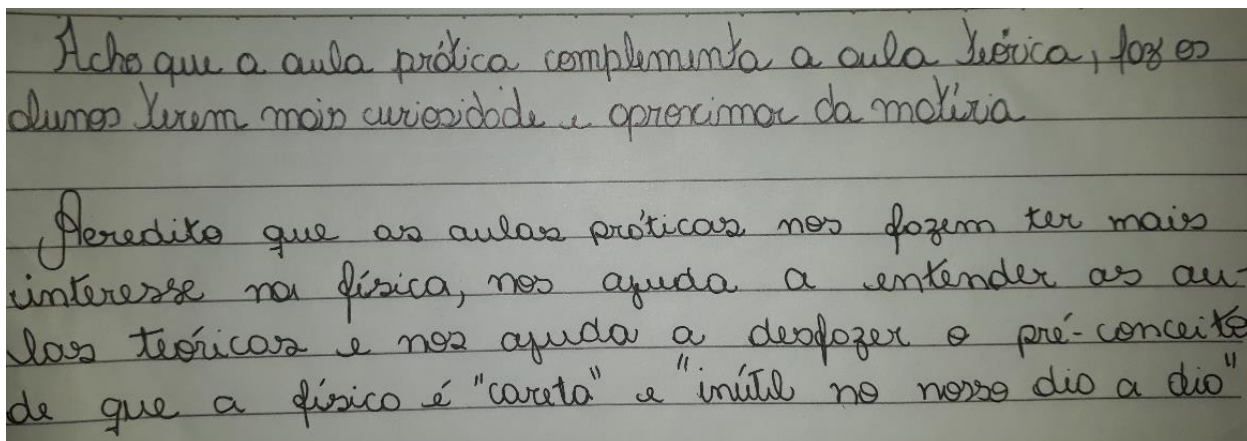 Acho que a aula prática complementa a aula teórica, faz os
alunos terem mais curiosidade e aproximar da matéria
Acredito que as aulas práticas nos fazem ter mais
interesse na física, nos ajuda a entender as au-
las teóricas e nos ajuda a desfazer o pré-conceito
de que a física é "careta" e "inútil no nosso dia a dia"